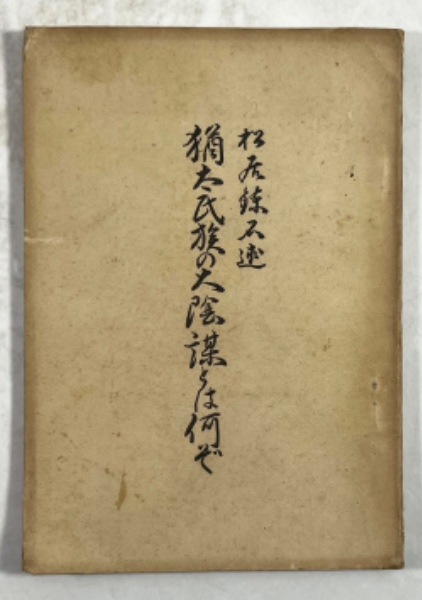 松居錬石述
猶太民族の大陰謀とは何ぞ